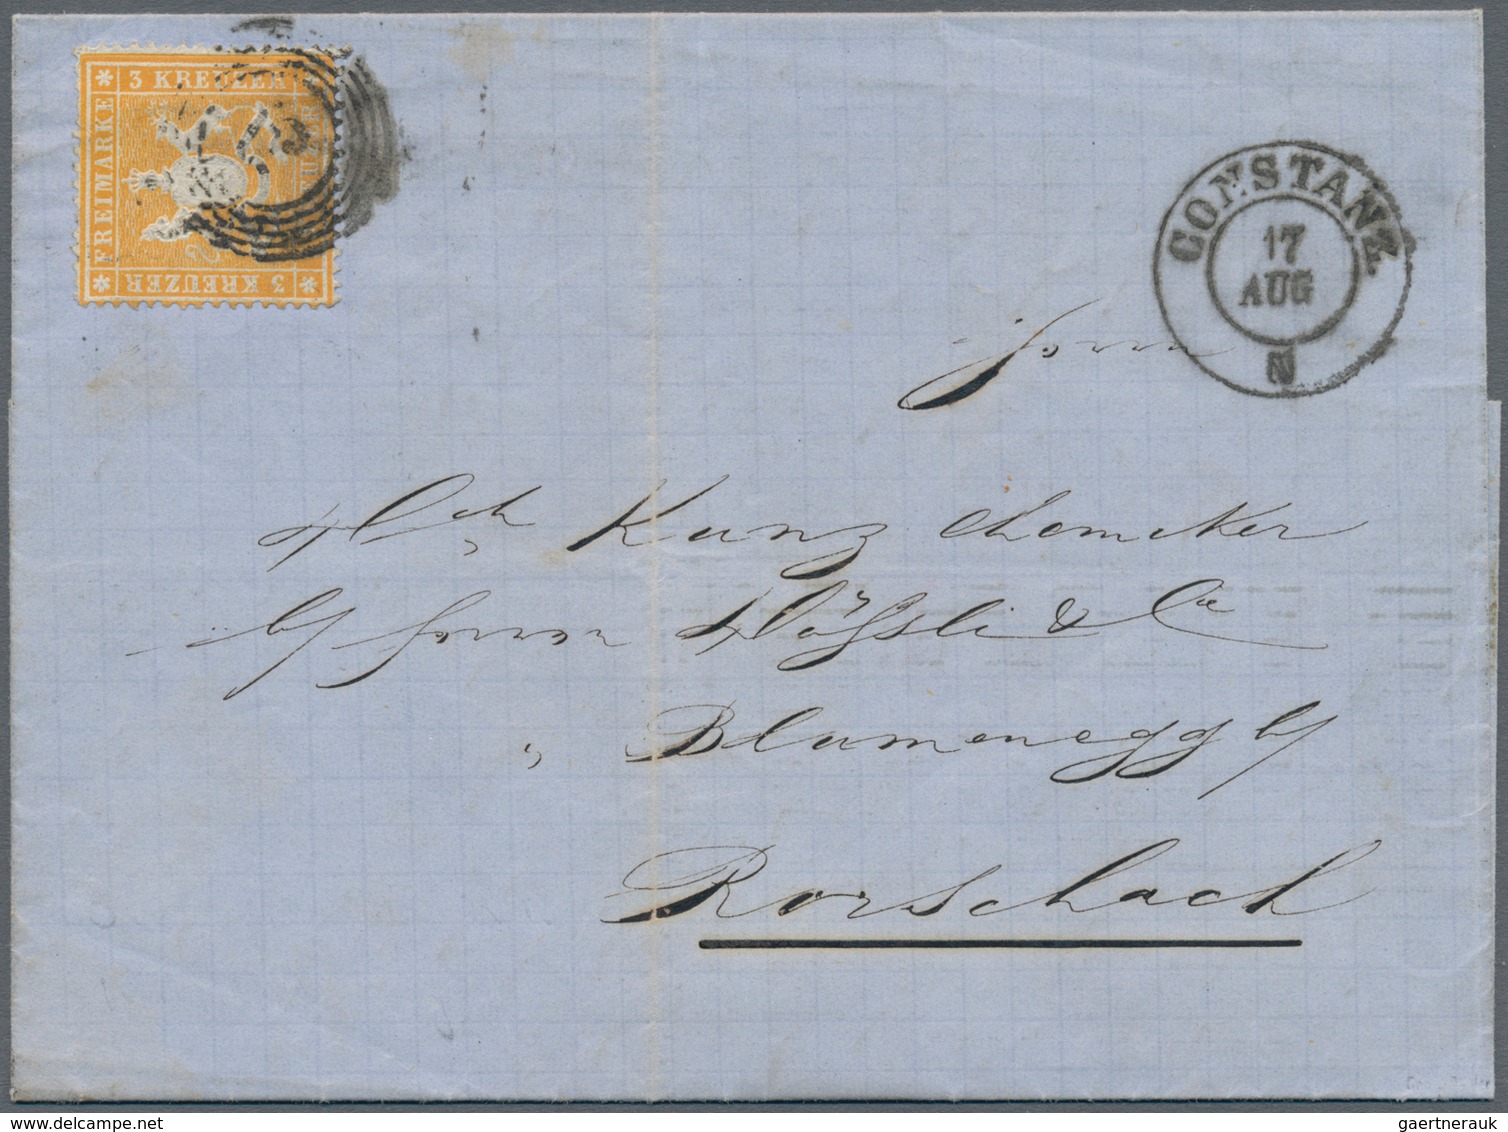 3 KREUZER
FREIMARKE
3 KREUZER
CONSTANZ
17
AUG
N
Herrn
Hch Kunz Chemiker
b/ Herren & Cie
Blumenegg b/
Rorschach
gaertnerauk